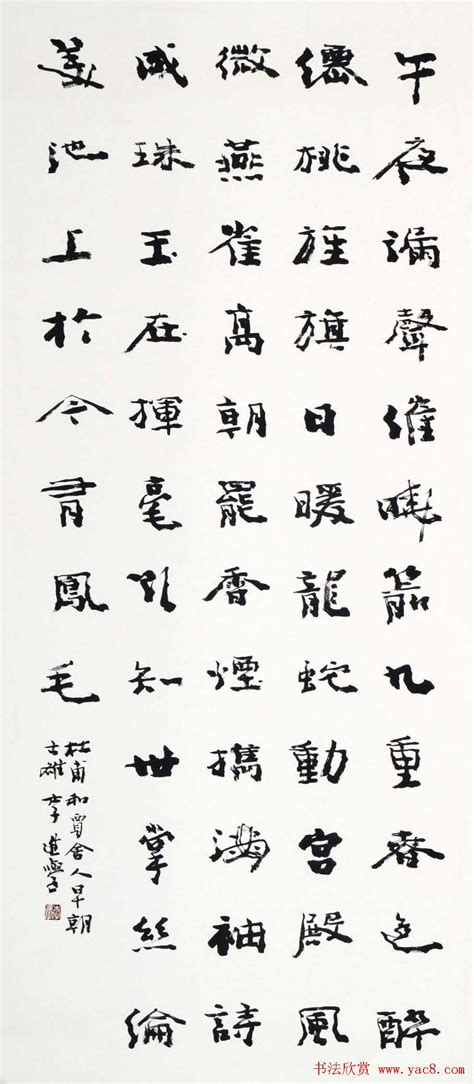 午夜漏聲催曉箭九重春色醉
僊桃旌旗日暖龍蛇動宮殿風
微燕雀高朝罷香煙攜滿袖詩
成珠玉在揮毫欲知世掌絲綸
美池上於今有鳳毛
杜甫和賈舍人早朝
雄 李進學
书法欣赏 www.yac8.com